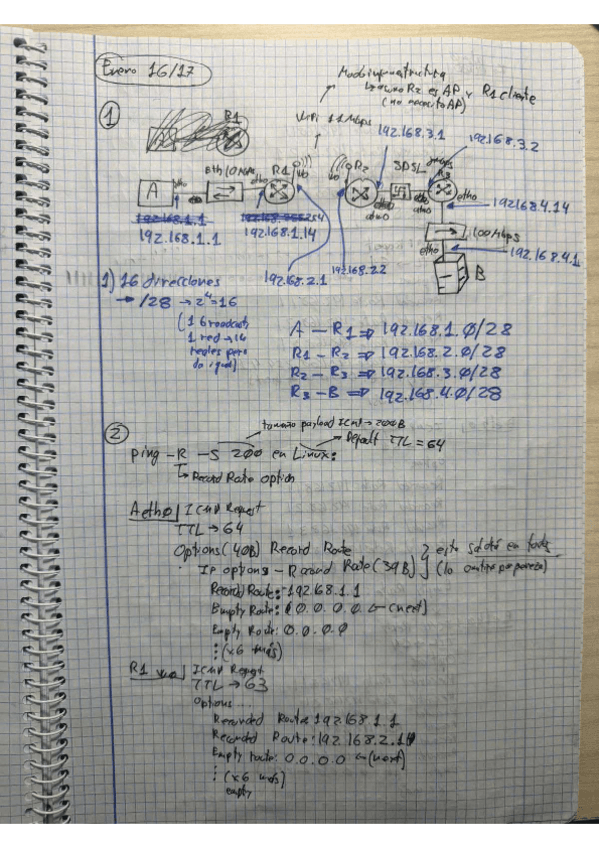 Enero 16/17
Modo infraestructura
uno R2 es AP y R1 cliente
(no necesito AP)
1
R1
WiFi 11Mbps
192.168.3.1
192.168.3.2
A
eth0
Eth 10Mbps
eth0
R1
R2
SDSL
R3
eth0
192.168.4.14
192.168.1.1
192.168.1.14
192.168.2.1
192.168.2.2
100Mbps
eth0
192.168.4.1
B
1) 16 direcciones
→ /28 → 2^4=16
(1 broadcast,
1 red → 14
reales pero
da igual)
A — R1 ⇒ 192.168.1.0/28
R1 — R2 ⇒ 192.168.2.0/28
R2 — R3 ⇒ 192.168.3.0/28
R3 — B ⇒ 192.168.4.0/28
2
tamaño payload ICMP → 200B
Default TTL = 64
ping -R -S 200 en Linux:
Record Rate option
A eth0 | ICMP Request
TTL → 64
Options (40B) Record Route
IP options - Record Rate (39B)
esto saldrá en todas
(lo omitiré por pereza)
Record Route: 192.68.1.1
Empty Route: 0.0.0.0 ← (next)
Empty Route: 0.0.0.0
⋮ (x6 más)
R1 | ICMP Request
TTL → 63
Options ...
Recorded Route: 192.168.1.1
Recorded Route: 192.168.2.1
Empty route: 0.0.0.0 ← (next)
⋮ (x6 más)
empty